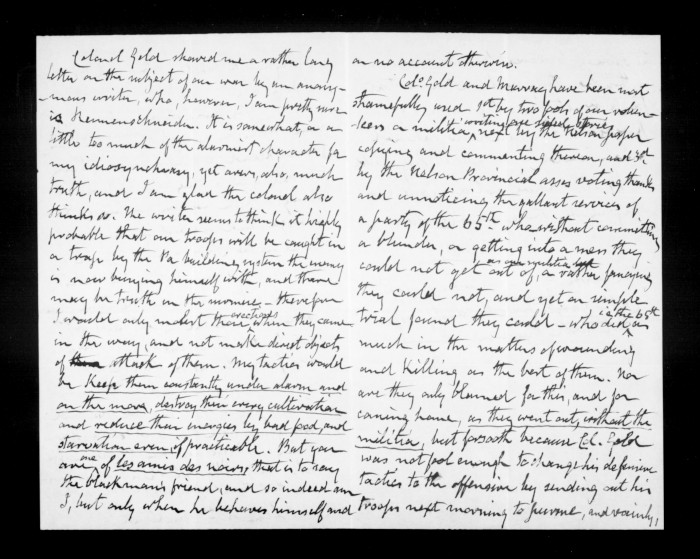 Colonel Gold showed me a rather long
letter on the subject of our war by an anony-
-mous writer, who, however, I am pretty sure
is Hermenschneider. It is somewhat, or a
little too much of the alarmist character for
my idiosyncracy, yet avers, also, much
truth, and I am glad the colonel also
thinks so. The writer seems to think it highly
probable that our troops will be caught in
a trap by the Pa building system the enemy
is now busying himself with, and there
may be truth on the surmise - therefore
I would only molest them when they came
in the way, and not make direct objects
of attack of them. My tactics would
be keep them constantly under alarm and
on the move, destroy their every cultivation
and reduce their energies by bad food, and
starvation even, if practicable. But you
are one of les amis des noirs, that is to say
the blackman's friend, and so indeed am
I, but only when he behaves himself and
on no account otherwise.
Col. Gold and Murray have been most
shamefully used 1st by two fools of our volun-
-teers or militia writing, next by the Nelson paper
copying and commenting thereon, and 3rd
by the Nelson Provincial asses voting thanks
and unnoticing the gallant services of
a party of the 65th who without committing
a blunder, or getting into a mess they
could not get out of, as our militia left, or rather fancying
they could not, and yet on simple
trial found they could - who did, i.e. the 65th, as
much in the matters of wounding
and killing as the best of them. Nor
are they only blamed for this, and for
coming home, as they went out, without the
militia, but forsooth because Col. Gold
was not fool enough to change his defensive
tactics to the offensive by sending out his
troops next morning to pursue, and vainly,